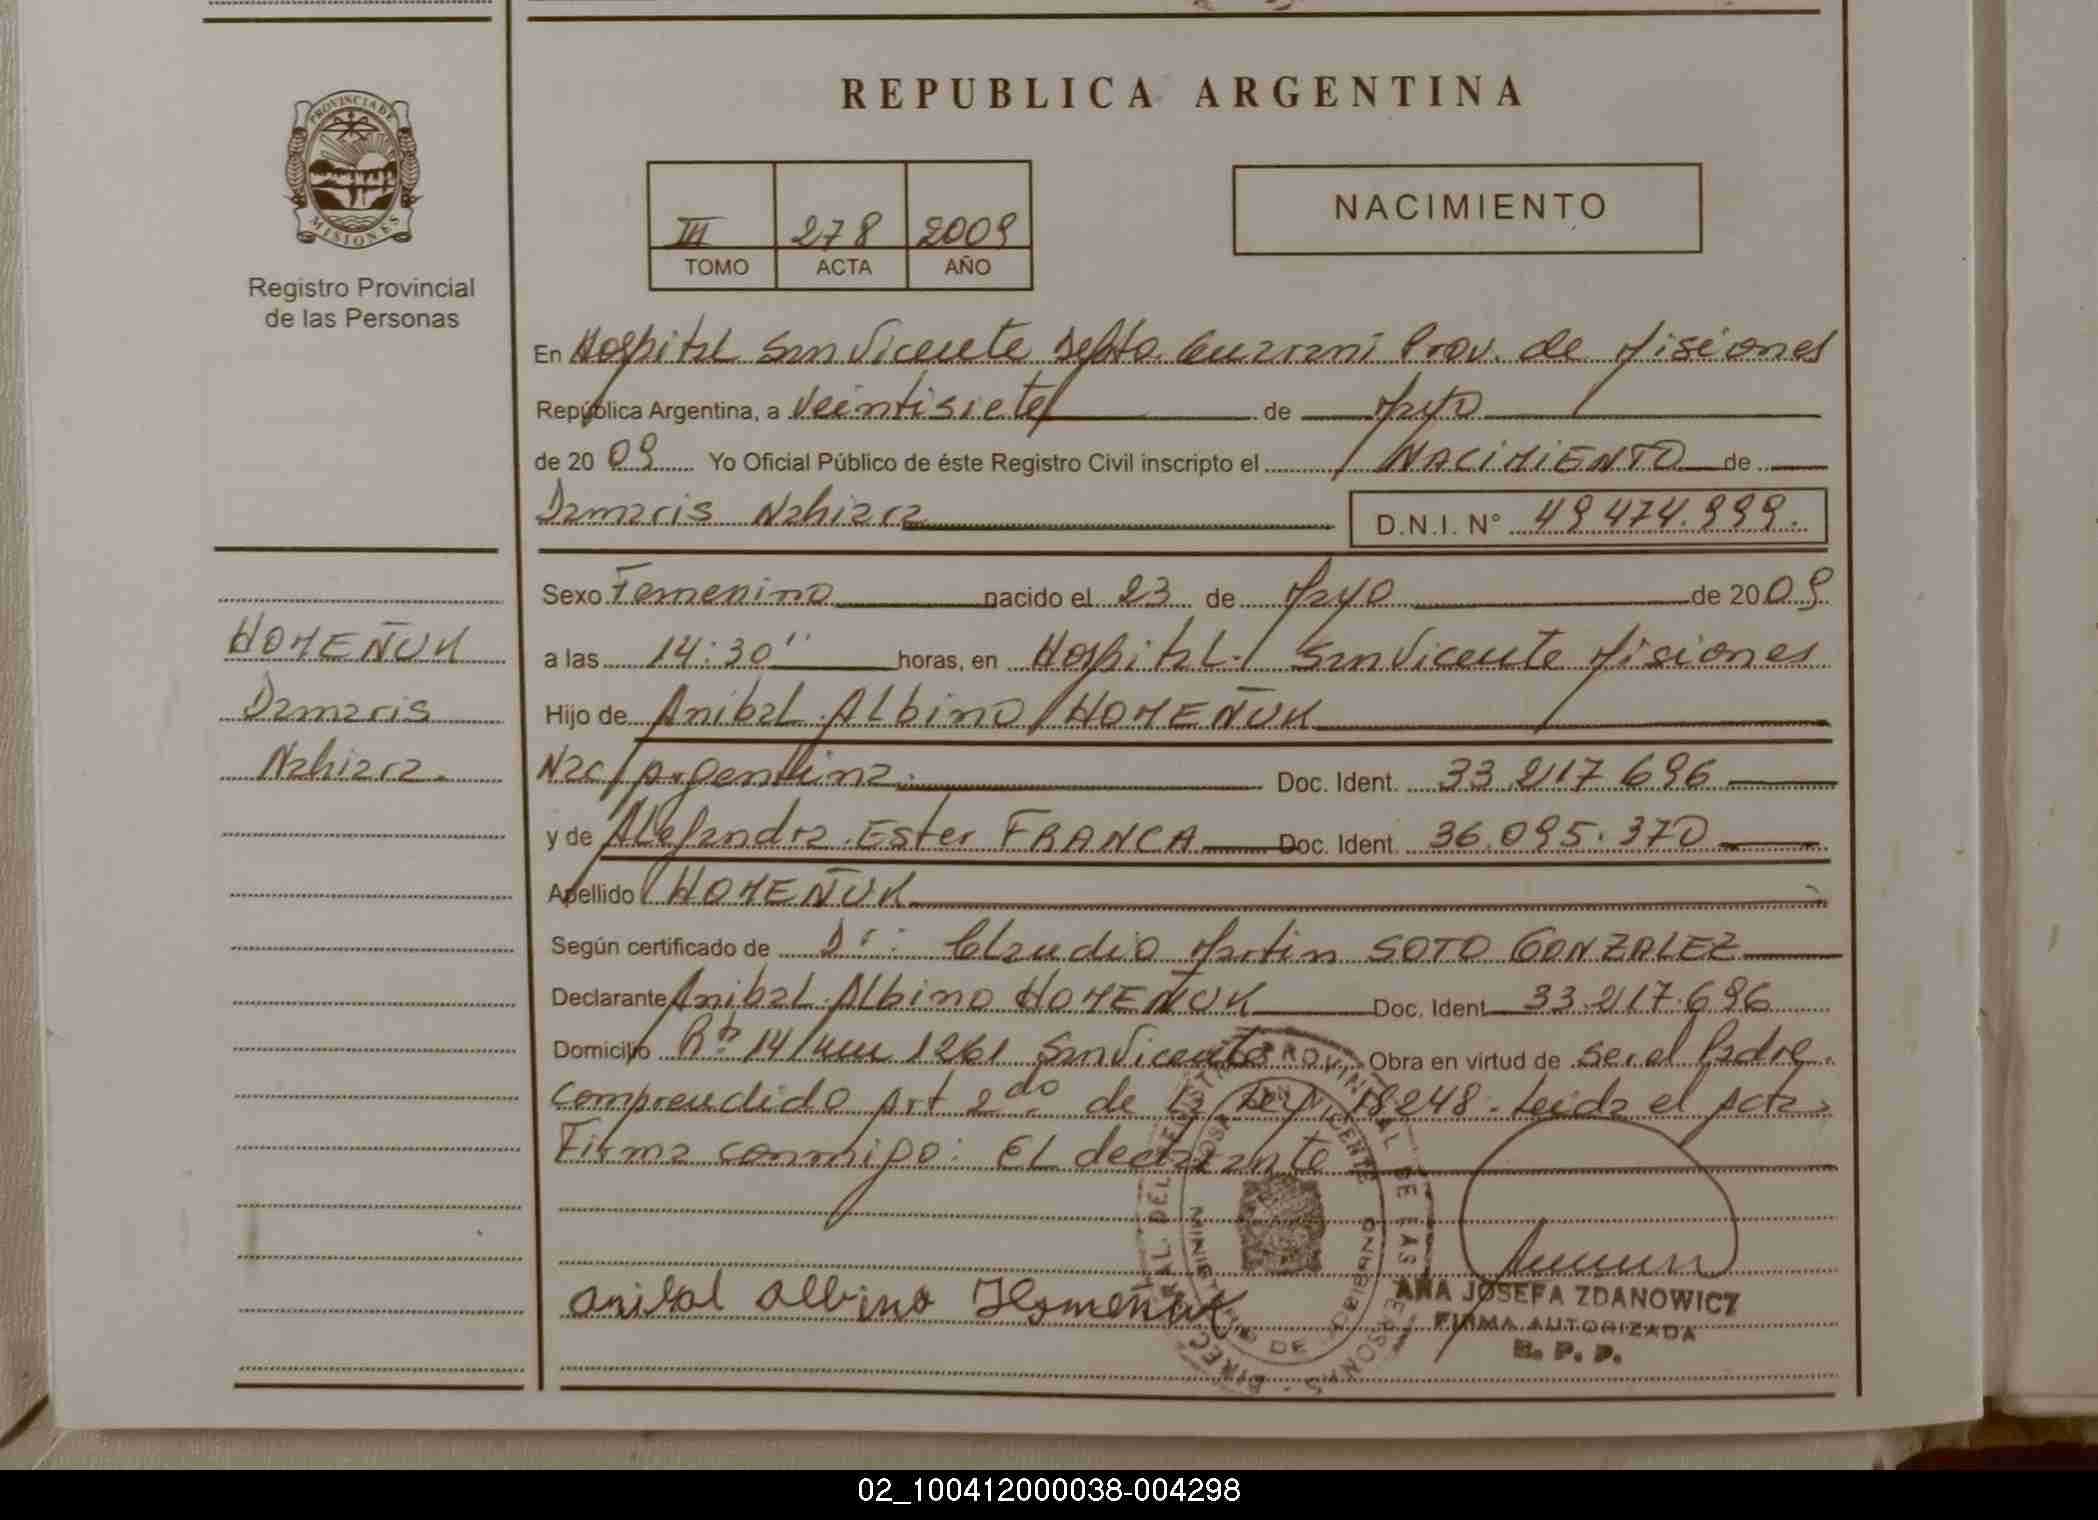 REPUBLICA ARGENTINA
PROVINCIA DE
MISIONES
Registro Provincial
de las Personas
III 278 2009
TOMO ACTA AÑO
NACIMIENTO
En Hospital San Vicente Depto. Guaraní Prov. de Misiones
República Argentina, a veintisiete de Mayo
de 2009 Yo Oficial Público de éste Registro Civil inscripto el NACIMIENTO de
Damaris Nahiara D.N.I. N° 49474.999.
Sexo Femenino nacido el 23 de Mayo de 2009
a las 14:30'' horas, en Hospital. San Vicente Misiones
Hijo de Anibal Albino HOMEÑUK
Nac. Argentina. Doc. Ident. 33.217.696
y de Alejandra Ester FRANCA Doc. Ident. 36.095.370
Apellido HOMEÑUK
Según certificado de Dr: Claudio Martin SOTO GONZALEZ
Declarante Anibal Albino HOMEÑUK Doc. Ident 33.217.696
Domicilio Rta 14 km 1261 San Vicente Obra en virtud de ser el Padre.
comprendido Art 2do de la Ley 18248. Leida el Acta
Firma conmigo: El declarante
HOMEÑUK
Damaris
Nahiara.
Anibal Albino Homeñuk
ANA JOSEFA ZDANOWICZ
FIRMA AUTORIZADA
R. P. P.
02_100412000038-004298